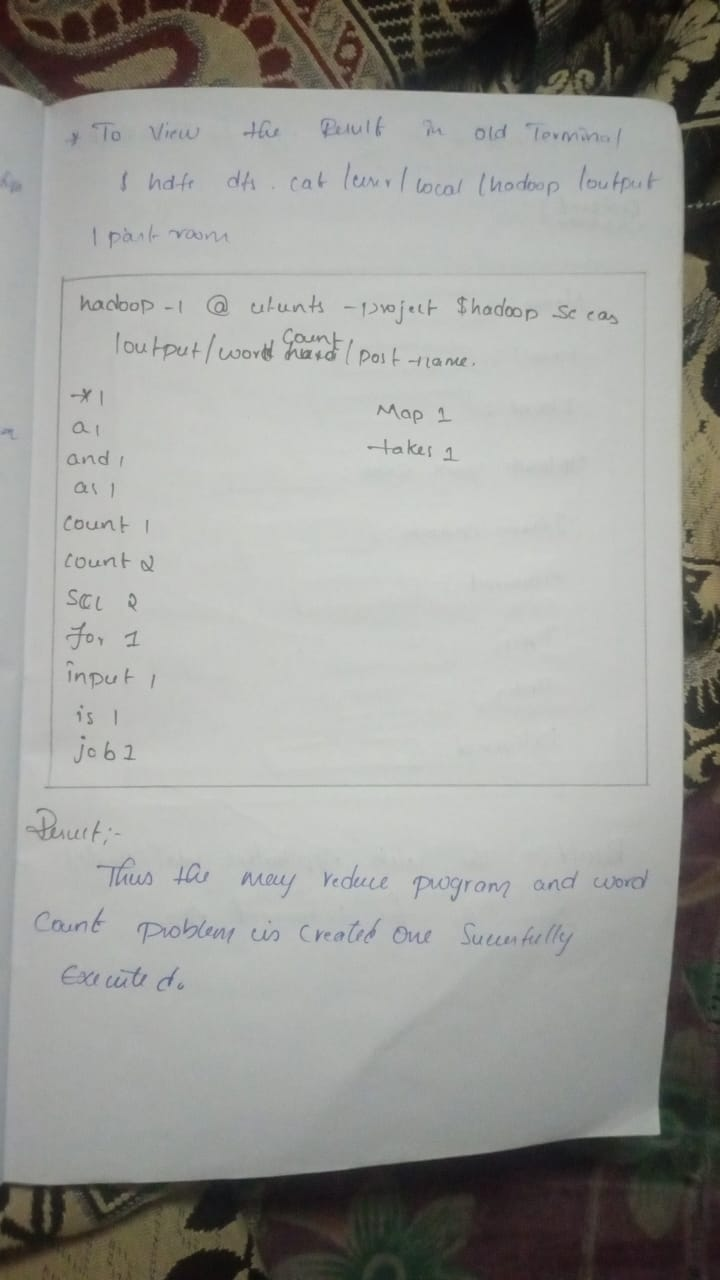 * To View the Result in old Terminal
$ hdfs dfs . cat /usr/ local /hadoop /output
/ part- room
hadoop -1 @ ubunts - project $hadoop Sc cas
/output/word count / post -name.
* 1
a 1
and 1
as 1
Count 1
count 2
for 1
input 1
is 1
job 1
Map 1
takes 1
Result:-
Thus the may reduce program and word
Count problem is Created one Successfully
Executed.